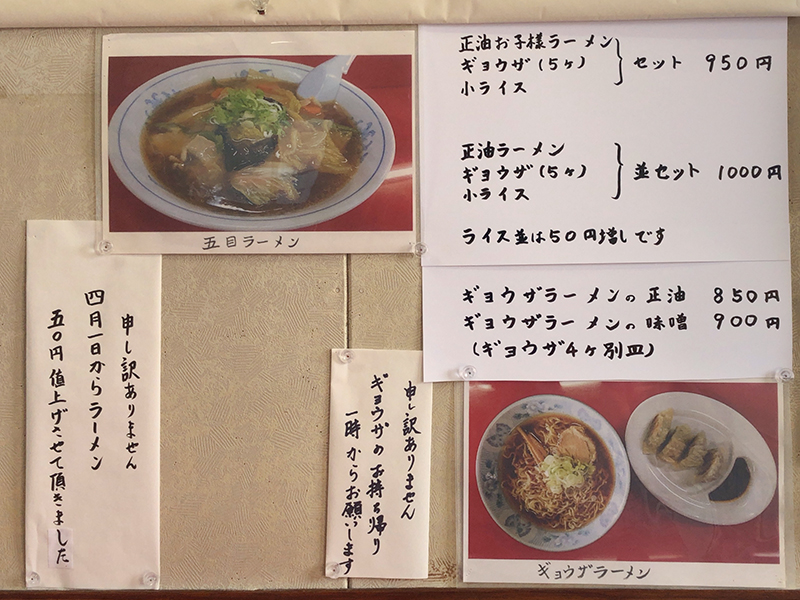 正油お子様ラーメン
ギョウザ(5ヶ) セット 950円
小ライス
正油ラーメン
ギョウザ(5ヶ) 並セット 1000円
小ライス
ライス並は50円増しです
ギョウザラーメンの正油 850円
ギョウザラーメンの味噌 900円
(ギョウザ4ヶ別皿)
五目ラーメン
申し訳ありません
四月一日からラーメン
五〇円値上げさせて頂きました
申し訳ありません
ギョウザのお持ち帰り
一時からお願いします
ギョウザラーメン